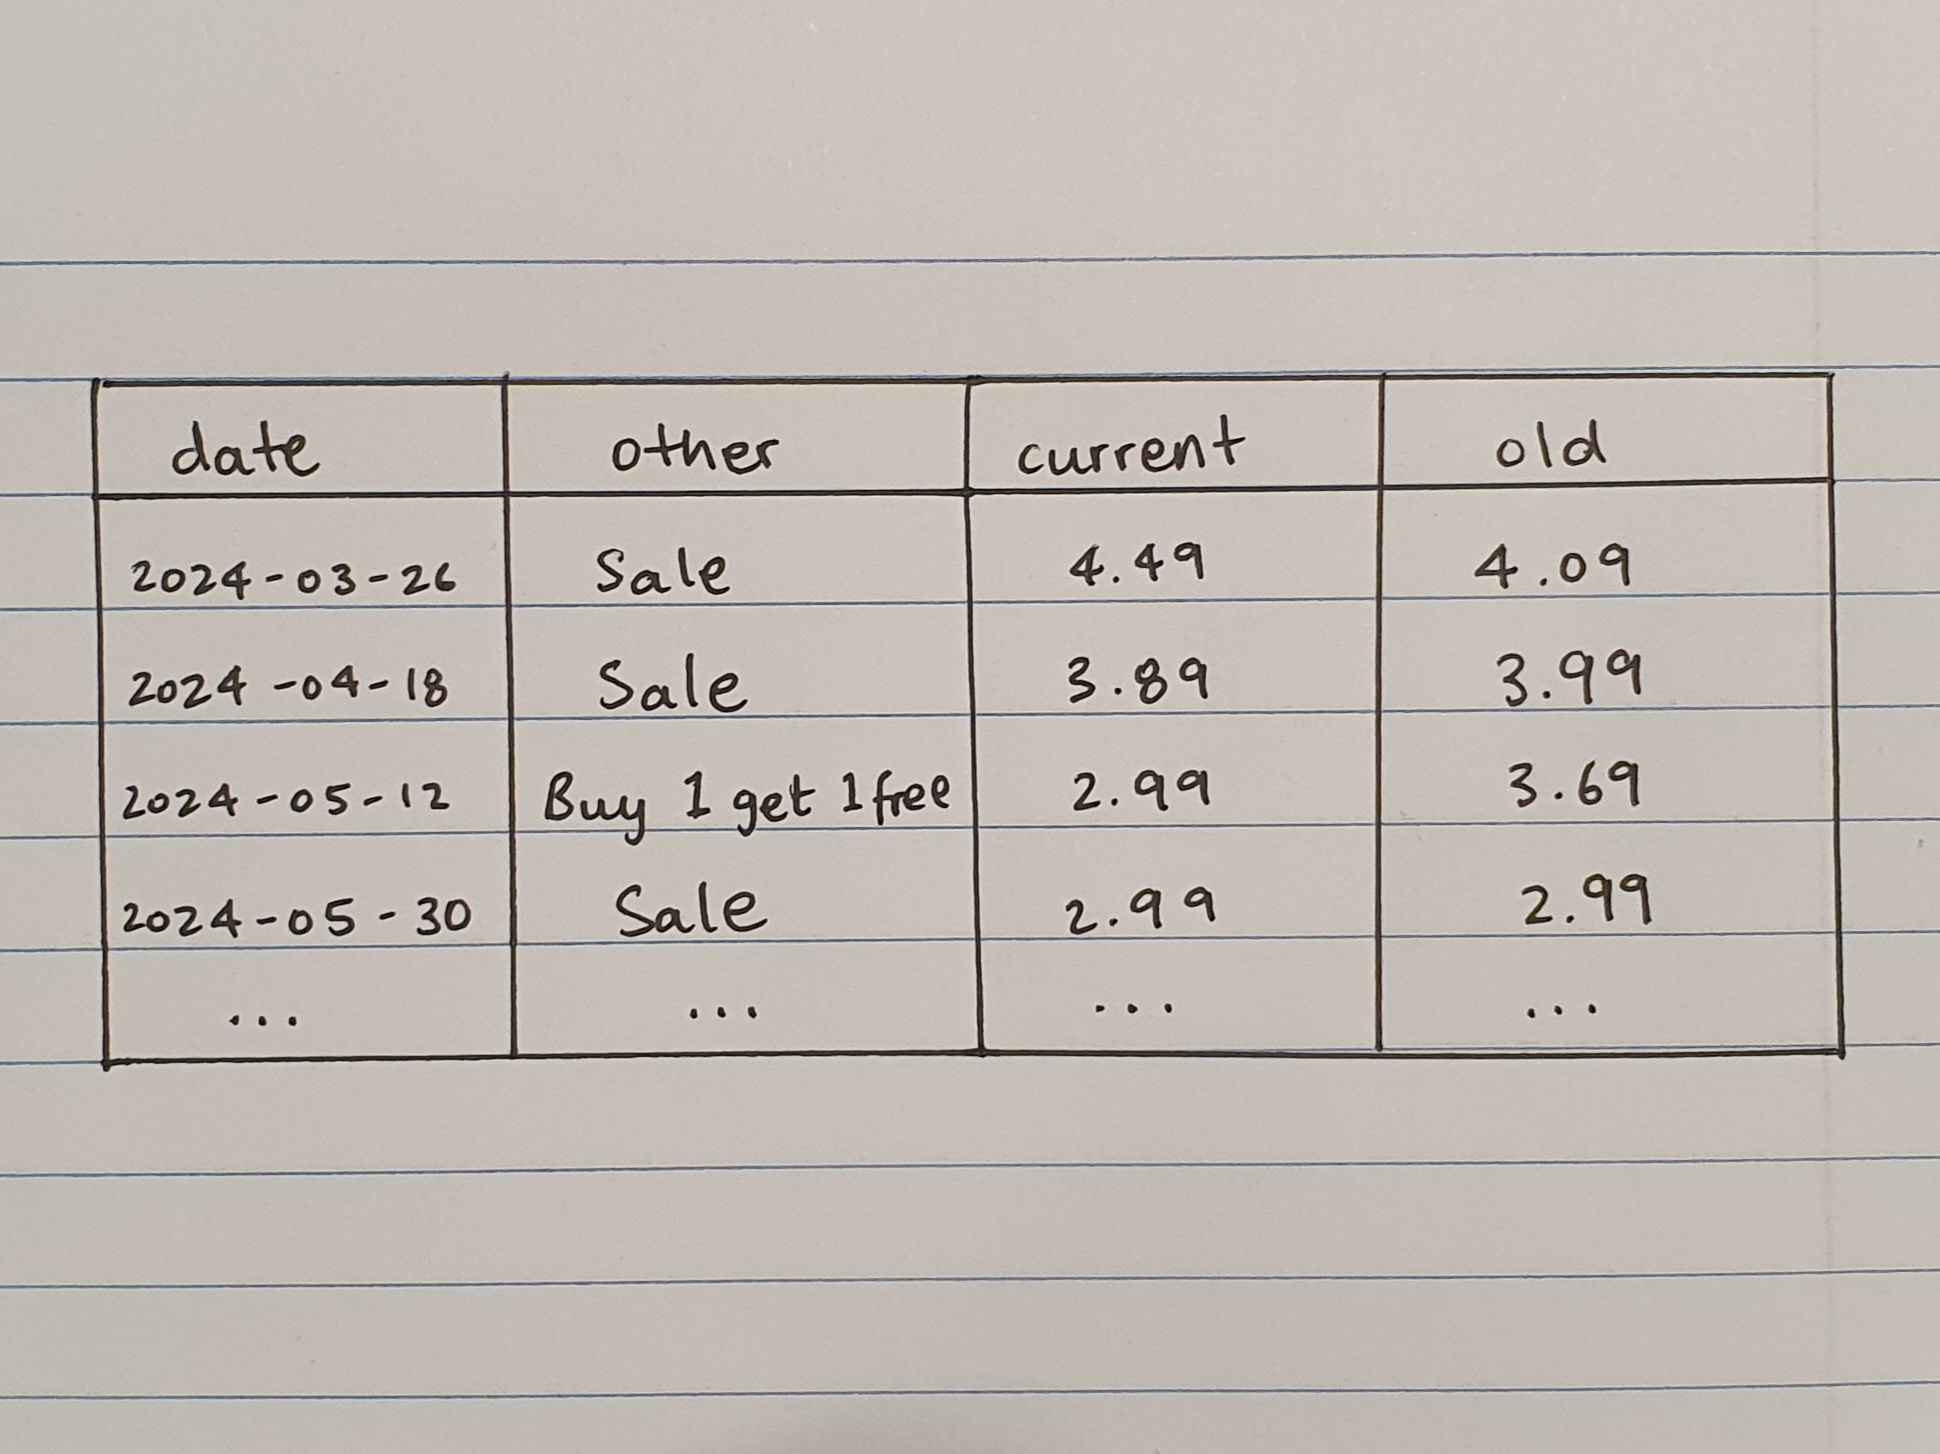 date other current old
2024-03-26 Sale 4.49 4.09
2024-04-18 Sale 3.89 3.99
2024-05-12 Buy 1 get 1 free 2.99 3.69
2024-05-30 Sale 2.99 2.99
... ... ... ...